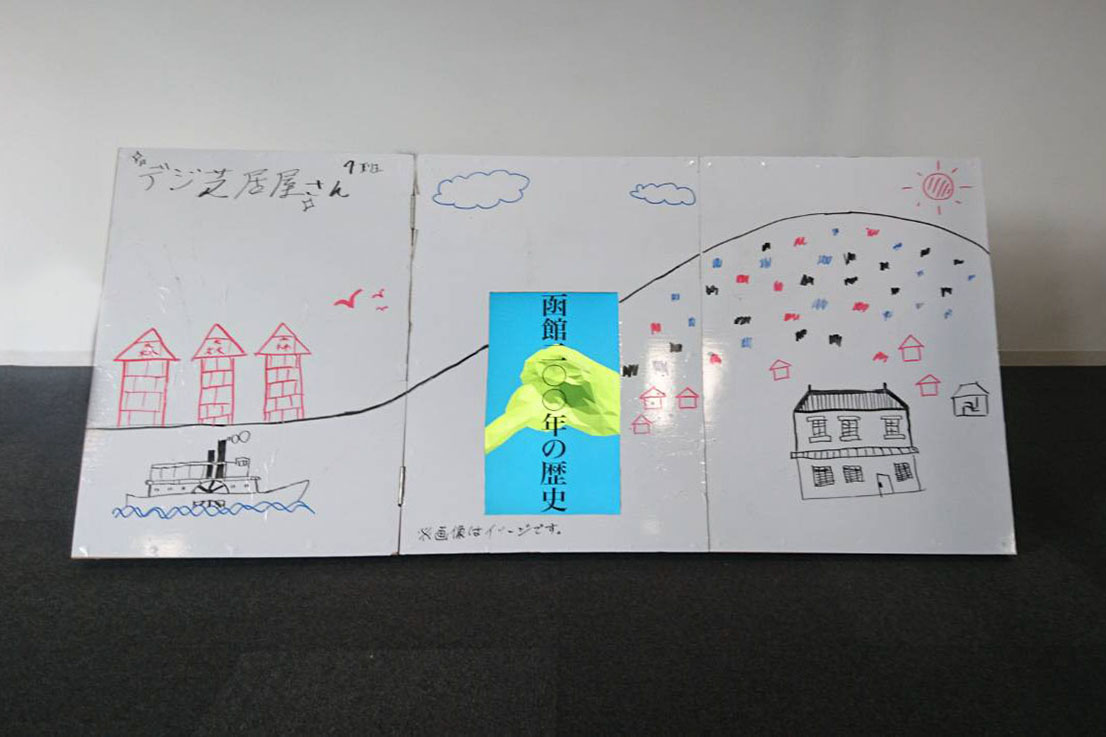 デジ芝居屋さん
9班
函館二〇〇年の歴史
※画像はイメージです。